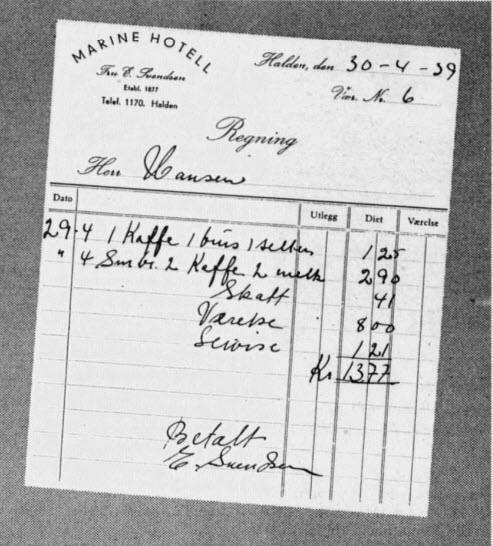 MARINE HOTELL
Fru E. Svendsen
Etabl. 1877
Telef. 1170. Halden
Halden, den 30-4-39
Vær. Nr. 6
Regning
Herr Hansen
Dato Utlegg Diet Værelse
29-4 1 Kaffe 1 brus 1 selters 1 25
" 4 Smbr. 2 Kaffe 2 melk 2 90
Skatt 41
Værelse 8 00
Servise 1 21
Kr 13 77
Betalt
E. Svendsen